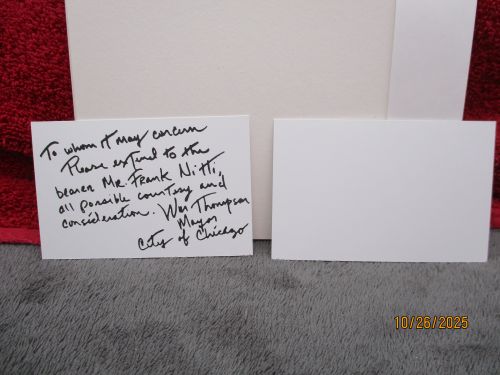 To whom it may concern
Please extend to the
bearer Mr. Frank Nitti,
all possible courtesy and
consideration. Wm Thompson
Mayor
City of Chicago
10/26/2025